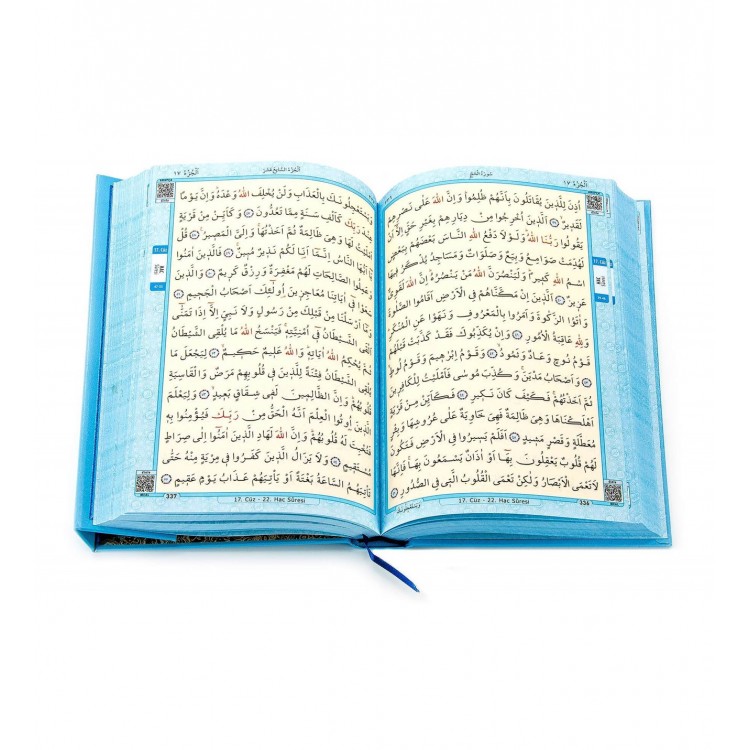 سُورَةُ الْحَجِّ
اَلْجُزْءُ ١٧
اُذِنَ لِلَّذِينَ يُقَاتَلُونَ بِاَنَّهُمْ ظُلِمُوا وَاِنَّ اللّٰهَ عَلٰى نَصْرِهِمْ
لَقَدِيرٌ ﴿٣٩﴾ اَلَّذِينَ اُخْرِجُوا مِنْ دِيَارِهِمْ بِغَيْرِ حَقٍّ اِلَّا اَنْ
يَقُولُوا رَبُّنَا اللّٰهُ وَلَوْلَا دَفْعُ اللّٰهِ النَّاسَ بَعْضَهُمْ بِبَعْضٍ
لَهُدِّمَتْ صَوَامِعُ وَبِيَعٌ وَصَلَوَاتٌ وَمَسَاجِدُ يُذْكَرُ فِيهَا
اسْمُ اللّٰهِ كَثِيرًا وَلَيَنْصُرَنَّ اللّٰهُ مَنْ يَنْصُرُهُ اِنَّ اللّٰهَ لَقَوِيٌّ
عَزِيزٌ ﴿٤٠﴾ اَلَّذِينَ اِنْ مَكَّنَّاهُمْ فِي الْاَرْضِ اَقَامُوا الصَّلٰوةَ
وَاٰتَوُا الزَّكٰوةَ وَاَمَرُوا بِالْمَعْرُوفِ وَنَهَوْا عَنِ الْمُنْكَرِ
وَلِلّٰهِ عَاقِبَةُ الْاُمُورِ ﴿٤١﴾ وَاِنْ يُكَذِّبُوكَ فَقَدْ كَذَّبَتْ قَبْلَهُمْ
قَوْمُ نُوحٍ وَعَادٌ وَثَمُودُ ﴿٤٢﴾ وَقَوْمُ اِبْرٰهِيمَ وَقَوْمُ لُوطٍ
﴿٤٣﴾ وَاَصْحَابُ مَدْيَنَ وَكُذِّبَ مُوسٰى فَاَمْلَيْتُ لِلْكَافِرِينَ
ثُمَّ اَخَذْتُهُمْ فَكَيْفَ كَانَ نَكِيرِ ﴿٤٤﴾ فَكَاَيِّنْ مِنْ قَرْيَةٍ
اَهْلَكْنَاهَا وَهِيَ ظَالِمَةٌ فَهِيَ خَاوِيَةٌ عَلٰى عُرُوشِهَا وَبِئْرٍ
مُعَطَّلَةٍ وَقَصْرٍ مَشِيدٍ ﴿٤٥﴾ اَفَلَمْ يَسِيرُوا فِي الْاَرْضِ فَتَكُونَ
لَهُمْ قُلُوبٌ يَعْقِلُونَ بِهَا اَوْ اٰذَانٌ يَسْمَعُونَ بِهَا فَاِنَّهَا
لَا تَعْمَى الْاَبْصَارُ وَلٰكِنْ تَعْمَى الْقُلُوبُ الَّتِي فِي الصُّدُورِ ﴿٤٦﴾
17. Cüz - 22. Hac Sûresi
336
وَيَسْتَعْجِلُونَكَ
اَلْجُزْءُ السَّابِعُ عَشَرَ
اَلْجُزْءُ ١٧
وَيَسْتَعْجِلُونَكَ بِالْعَذَابِ وَلَنْ يُخْلِفَ اللّٰهُ وَعْدَهُ وَاِنَّ يَوْمًا
عِنْدَ رَبِّكَ كَاَلْفِ سَنَةٍ مِمَّا تَعُدُّونَ ﴿٤٧﴾ وَكَاَيِّنْ مِنْ قَرْيَةٍ
اَمْلَيْتُ لَهَا وَهِيَ ظَالِمَةٌ ثُمَّ اَخَذْتُهَا وَاِلَيَّ الْمَصِيرُ ﴿٤٨﴾ قُلْ
يَا اَيُّهَا النَّاسُ اِنَّمَا اَنَا لَكُمْ نَذِيرٌ مُبِينٌ ﴿٤٩﴾ فَالَّذِينَ اٰمَنُوا
وَعَمِلُوا الصَّالِحَاتِ لَهُمْ مَغْفِرَةٌ وَرِزْقٌ كَرِيمٌ ﴿٥٠﴾ وَالَّذِينَ
سَعَوْا فِي اٰيَاتِنَا مُعَاجِزِينَ اُولٰئِكَ اَصْحَابُ الْجَحِيمِ ﴿٥١﴾
وَمَا اَرْسَلْنَا مِنْ قَبْلِكَ مِنْ رَسُولٍ وَلَا نَبِيٍّ اِلَّا اِذَا تَمَنّٰى
اَلْقَى الشَّيْطَانُ فِي اُمْنِيَّتِهِ فَيَنْسَخُ اللّٰهُ مَا يُلْقِي الشَّيْطَانُ
ثُمَّ يُحْكِمُ اللّٰهُ اٰيَاتِهِ وَاللّٰهُ عَلِيمٌ حَكِيمٌ ﴿٥٢﴾ لِيَجْعَلَ مَا
يُلْقِي الشَّيْطَانُ فِتْنَةً لِلَّذِينَ فِي قُلُوبِهِمْ مَرَضٌ وَالْقَاسِيَةِ
قُلُوبُهُمْ وَاِنَّ الظَّالِمِينَ لَفِي شِقَاقٍ بَعِيدٍ ﴿٥٣﴾ وَلِيَعْلَمَ
الَّذِينَ اُوتُوا الْعِلْمَ اَنَّهُ الْحَقُّ مِنْ رَبِّكَ فَيُؤْمِنُوا بِهِ
فَتُخْبِتَ لَهُ قُلُوبُهُمْ وَاِنَّ اللّٰهَ لَهَادِ الَّذِينَ اٰمَنُوا اِلٰى صِرَاطٍ
مُسْتَقِيمٍ ﴿٥٤﴾ وَلَا يَزَالُ الَّذِينَ كَفَرُوا فِي مِرْيَةٍ مِنْهُ حَتّٰى
تَأْتِيَهُمُ السَّاعَةُ بَغْتَةً اَوْ يَأْتِيَهُمْ عَذَابُ يَوْمٍ عَقِيمٍ ﴿٥٥﴾
17. Cüz - 22. Hac Sûresi
337